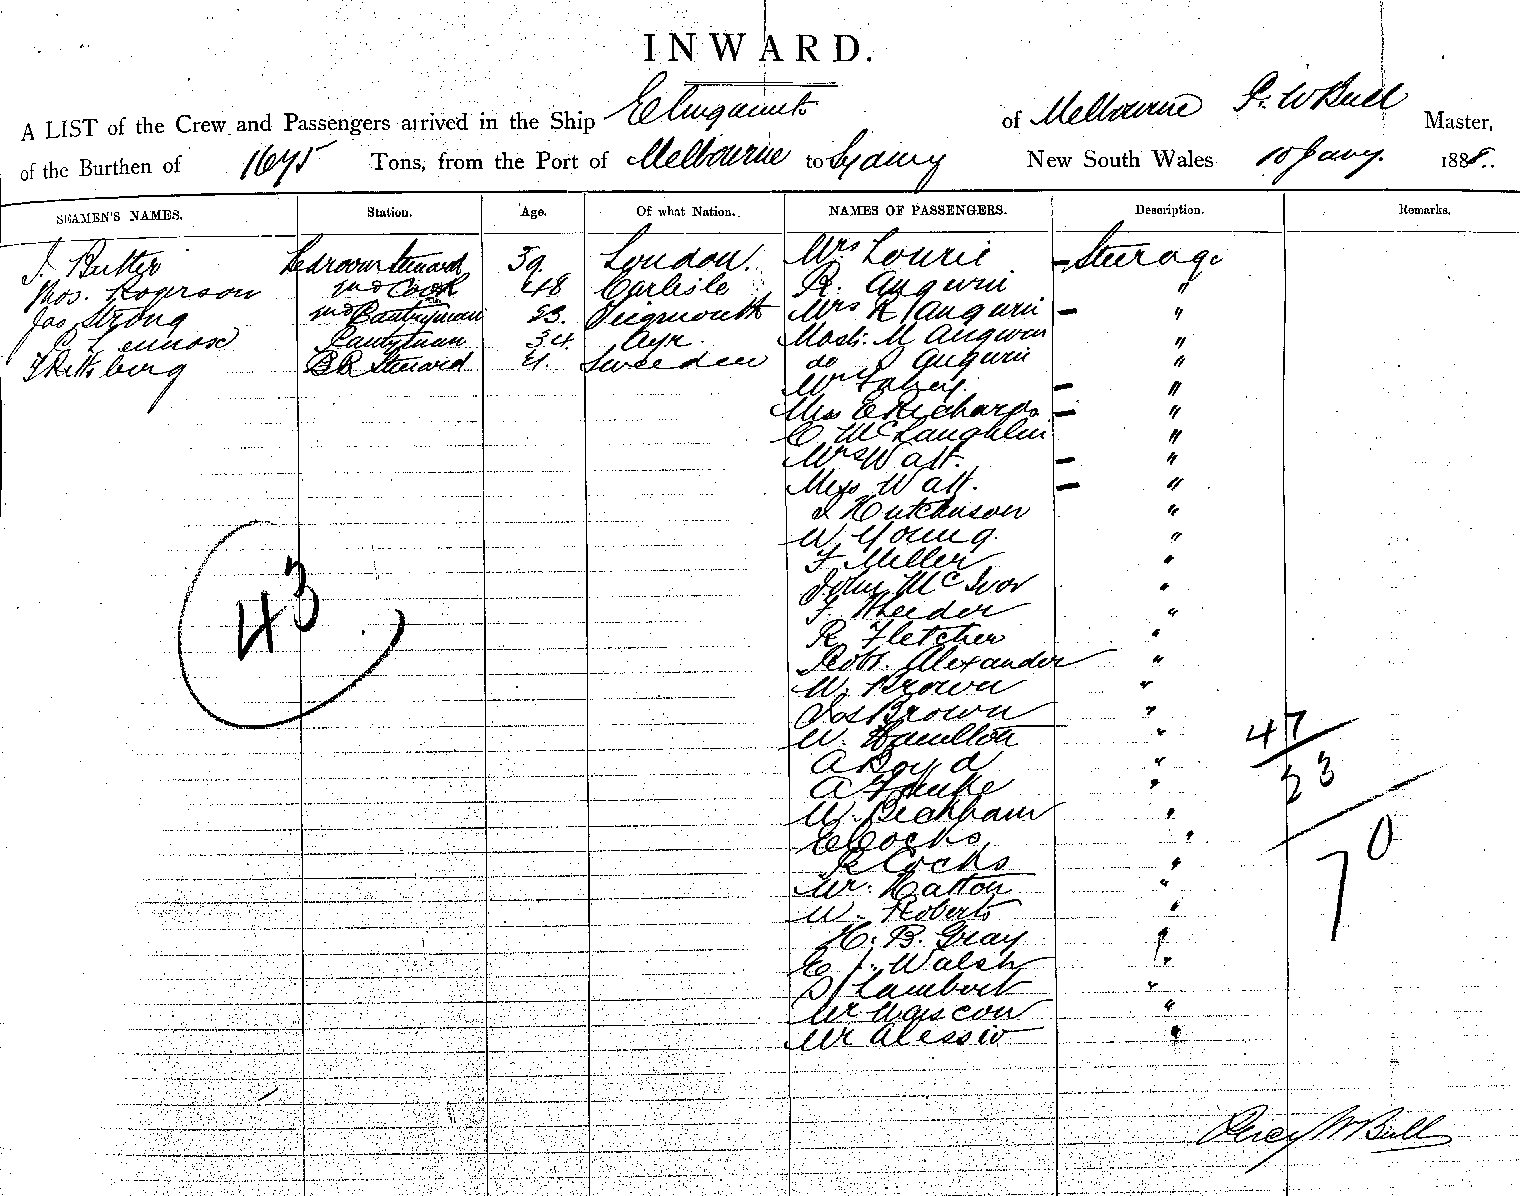 INWARD.
A LIST of the Crew and Passengers arrived in the Ship Elingamite of Melbourne P. W Bull Master,
of the Burthen of 1675 Tons, from the Port of Melbourne to Sydney New South Wales 10 Jany. 1888.
SEAMEN'S NAMES. Station. Age. Of what Nation. NAMES OF PASSENGERS. Description. Remarks.
J. Butter Bedroom Steward 39. London. Mrs Lourie Steerage
Rogerson 2nd Cook 48 Carlisle R. Angwin "
Jas Strong 23. Mrs R Angwin "
Lennox Pantryman 34 Ayr. Mastr. M Angwin "
BR Steward Sweeden do J Angwin "
Mrs Fahey. "
Miss E Richards "
C McLaughlin "
Mrs Watt. "
Miss Watt. "
J Hutchinson "
W Young. "
F Miller "
John McIvor "
F. Wheeder "
R Fletcher "
Robt. Alexander "
W. Brown "
Jas Brown "
W. Hamilton "
A Boyd "
A "
W. Peckham "
E Cocks "
R Cocks "
Mr. Hatton "
W. Roberts "
H. B. Gray "
E J. Walsh "
S Lambert "
Mr "
Mr Alessio "
43
47
23
70
Percy W Bull